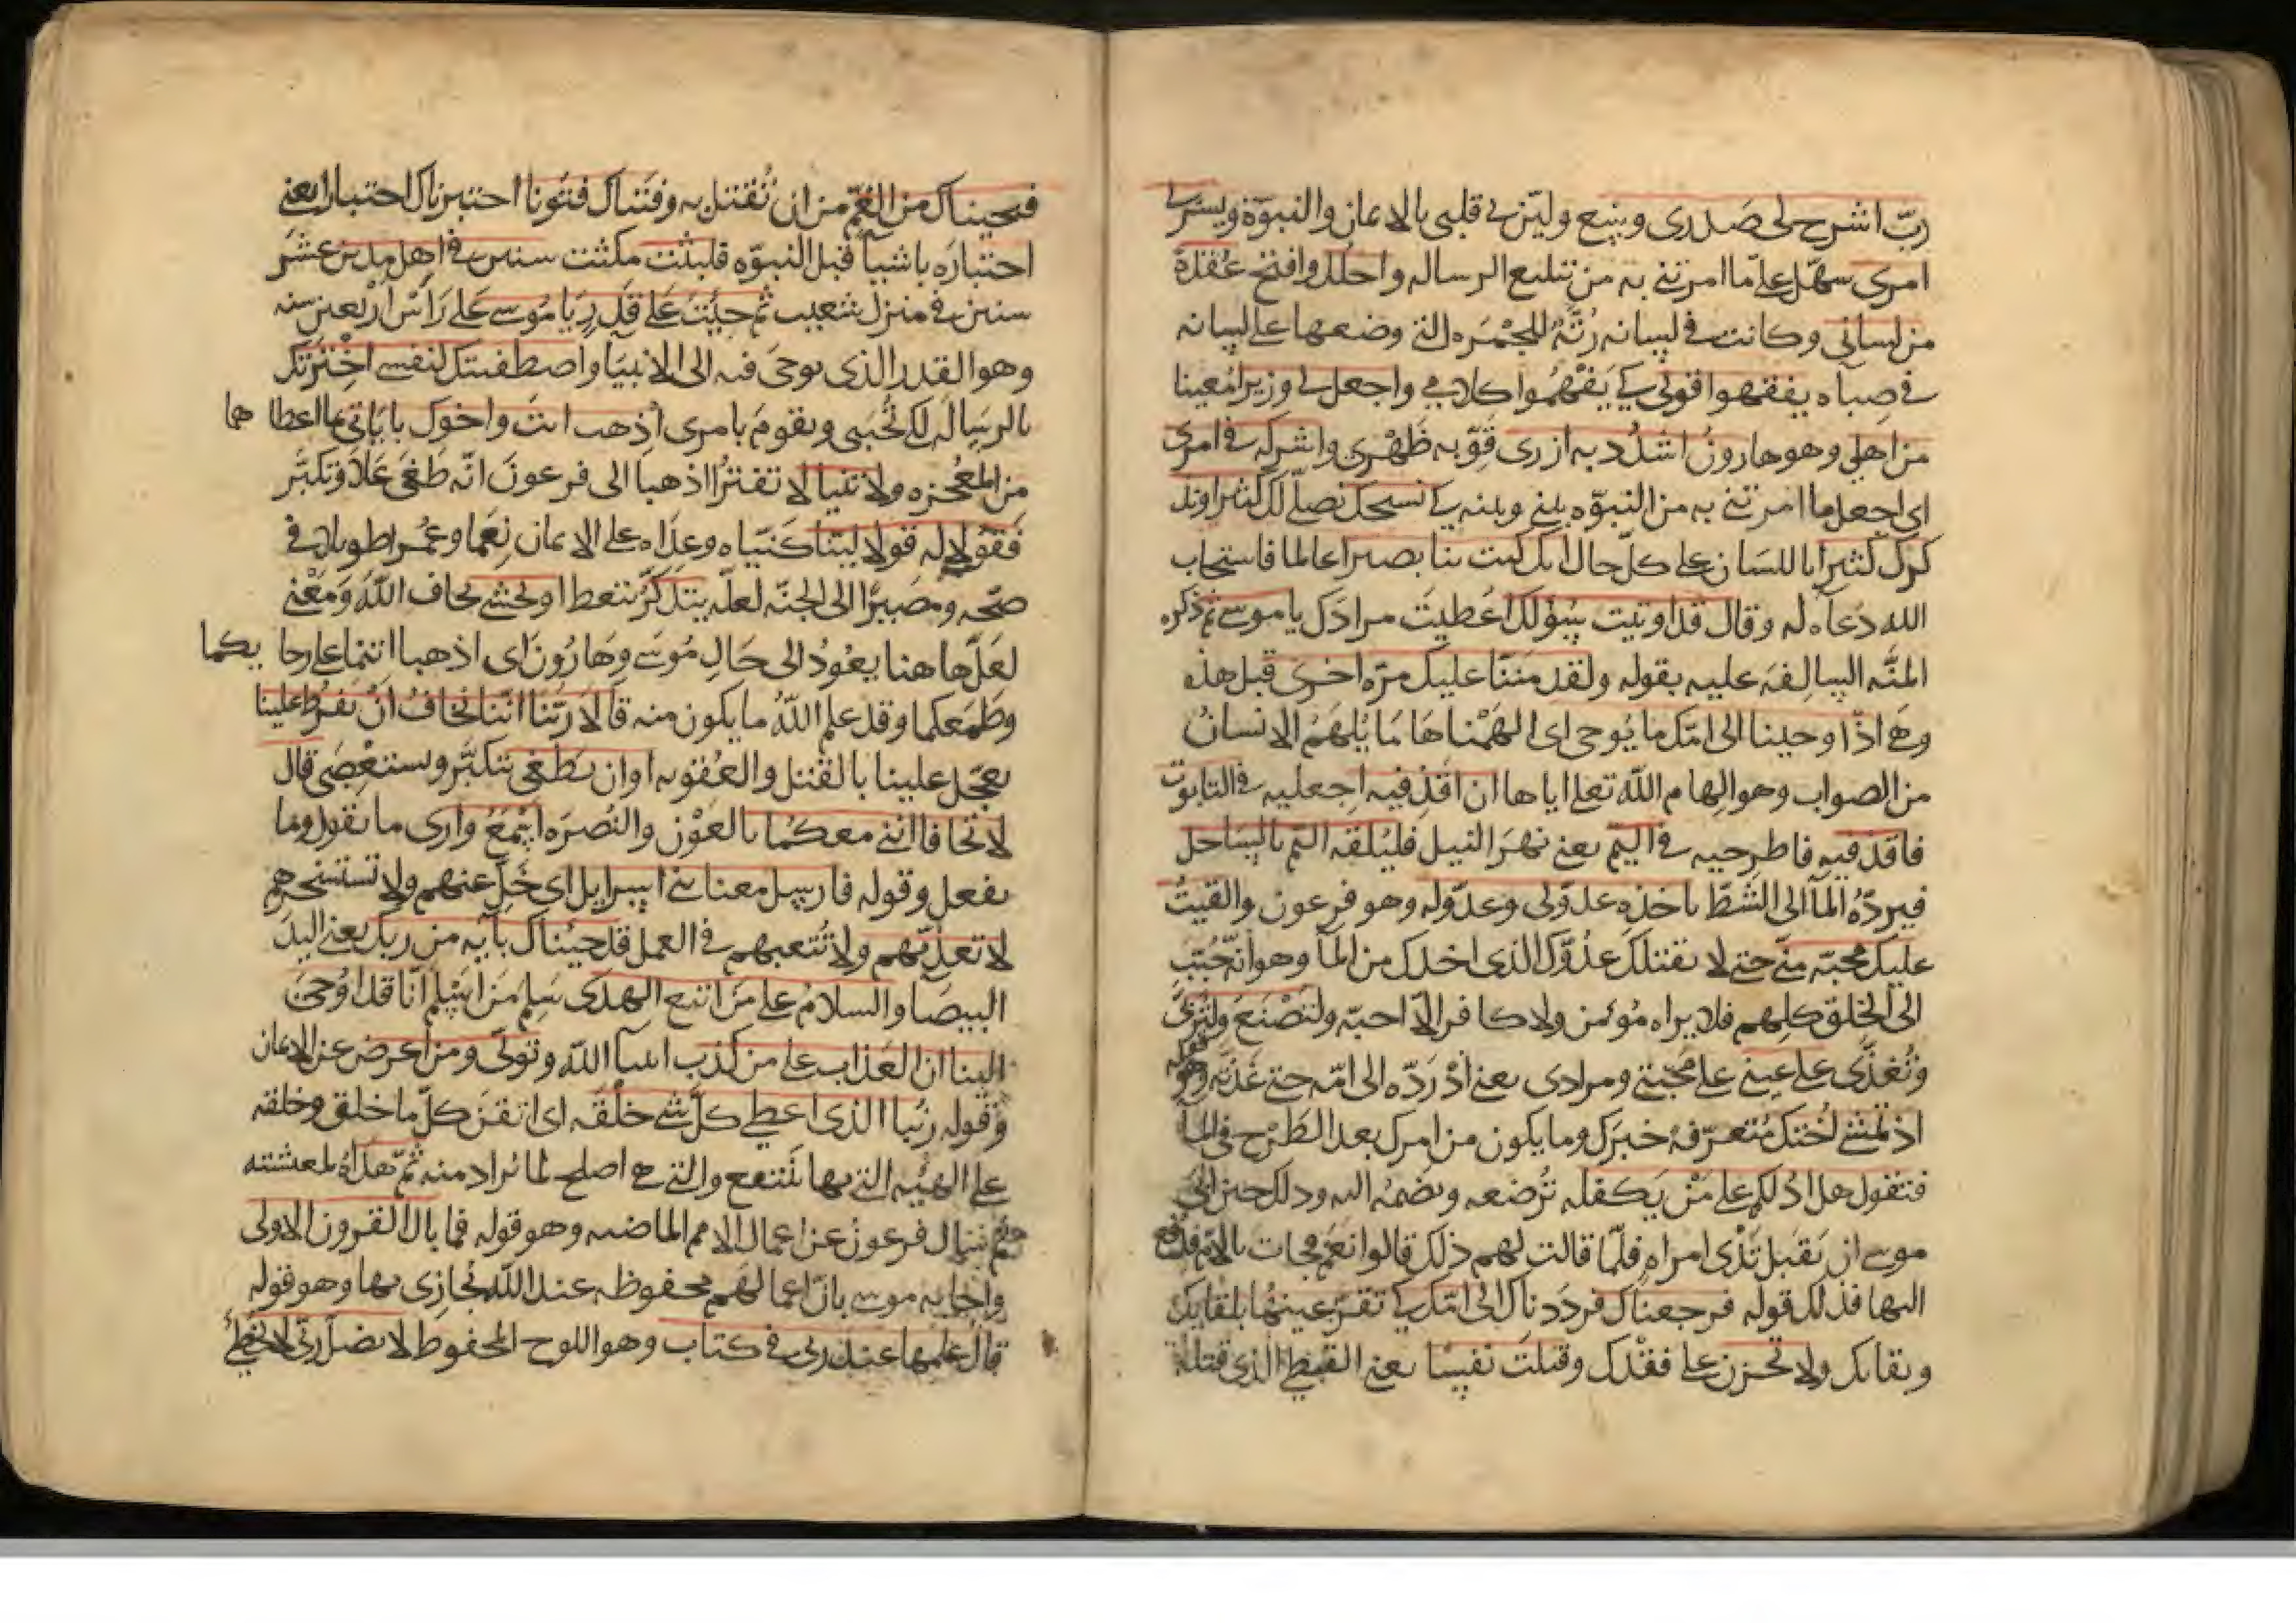 ربّ اشرح لي صَدري وسّع وليّن لي قلبي بالايمان والنبوّة ويسّر لي
امري سهّل علىّ ما امرتني به من تبليغ الرساله واحلل وافتح عُقدةً
من لساني وكانت في لسانه رُتَّةٌ للجَمْرَه التي وضعها على لسانه
في صباه يفقهوا قولي كي يَفْهَموا كلامي واجعل لي وزيرا مُعينا
من اهلي وهو هارونُ اشدُد به ازري قوِّ به ظَهْري واشركه في امري
اي اجعل ما امرتني به من النبوّه بيني وبينه كي نسبحك نصلّي لك كثيرا ونذ
كرك كثيرا باللسان على كلّ حال انك كنت بنا بصيرا عالما فاستجاب
الله دُعاه له وقال قد اوتيت سُؤلك اعُطيتَ مرادَك يا موسى ثم ذكره
المنَّه السالِفَه عليه بقوله ولقد مننّا عليك مرّه اخرى قبل هذه
وهي اذ اوحينا الى امّك ما يُوحى اي الهَمْناها مَا يُلهَمُ الانسانُ
من الصواب وهو الهام الله تعلى اياها ان اقذفيه اجعليه في التابوت
فاقذفيه فاطرحيه في اليمّ يعني نهرَ النيل فليُلقه اليم بالسَاحل
فيردّهُ الماَ الى الشطّ ياخذه عدوّ لي وعدوّ له وهو فرعون والقيتُ
عليك محبّه منّي حتى لا يقتلك عدوّك الذي اخذك من الماَ وهو انه حُبّبَ
الى الخلق كلهم فلا يراه مُؤمن ولا كافر الّا احبّه ولتُصْنَعَ ولتُربّى
وتُغذّى على عيني على محبّتي ومرادي يعني اذ رَدّه الى امّه حتى غذته وهو قوله
اذ تمشي اُختك مُتعرّفةً خبرَك وما يكون من امرك بعد الطَرْح في الماَ
فتقول هل ادُلكم على مَنْ يَكفله تُرضعه ويضمُه اليه وذلك حين ابى
موسى ان يَقبَل ثَدْي امراهٍ فلمّا قالت لهم ذلك قالوا نعَمْ فجات بالامّ فدفع
اليها فذلك قوله فرجعناك فردَدناك الى امّك كي تقرّ عينُها بلقايك
وبقايك ولا تحزن على فقْدك وقتلتَ نَفسًا يعني القبطي الذي قتله
فنجيناك من الغَمّ من ان تُقتل به وفتنّاك فتُونا اختبرناك اختبارا يعني
اختبارَه باشياَ قبل النبوّه فلبثت مكثت سنين في اهل مدين عشر
سنين في منزل شعيب ثم جئتَ على قدَرٍ يا مُوسى على راَس اَربعين سنه
وهو القدر الذي يوحَى فيه الى الانبيَا واصطفيتك لنفسى اخْتَرتك
بالرسِاله لكي تُحبّني وتقومَ بامري اذهب انت واخوك باياتي بما اعطاهما
من المُعجزه ولا تنيا لا تفتُرا اذهبا الى فرعونَ انّه طَغَى عَلاَ وتكبّر
فقُولا له قولا ليّنا كنّياه وعِداه على الايمان نِعَما وعُمُرا طويلا في
صحّه ومَصيرًا الى الجنّه لعلّه يتذكّر يتعظ او يخشى يخاف الله وَمَعْنى
لعَلّ هاهنا يعُودُ الى حَالِ مُوسَى وهَارُون اي اذهبا انتُمَا على رجايكما
وطَمَعكما وقد علم اللهُ ما يكون منه قالاَ رَبّنا انّنا نخافُ ان يَفرُط علينا
يعجَل علينا بالقَتل والعُقوبه او ان يَطْغَى يتكبّر ويستعْصِي قال
لا تخافا انّني معكُما بالعَوْن والنُصرَه اسْمَعُ وارى ما يقول وما
يفعل وقوله فارسِل معنا بني اسرايل اي خَلِّ عنهم ولا تستسخرهم
لا تعذّبهم ولا تُتعبهم في العمل قد جيئناك بآيه من ربك يعني اليدَ
البيضا والسلامُ على مَن اتبع الهدى سَلِم مَن اَسْلم انّا قد اوُحيَ
الينا ان العَذاب على من كذب انبياَ الله وتولّى ومن اعرض عن الايمان
وقوله رَبّنا الذي اعطى كلّ شي خلْقَه اي اتقنَ كلّ ما خلق وخلقه
على الهيئه التي بها يَنتفع والتي هي اصلح لما يُراد منه ثمّ هَداهُ لمعيشته
ثم سَال فرعونُ عن اعمال الامم الماضيه وهو قوله فما بال القرون الاولى
واجابه موسى بانّ اعمالهم محفوظه عند الله يُجازي بها وهو قوله
قال علمها عند ربي في كتاب وهو اللوح المحفوظ لا يضلّ ربّي لا يُخطئ